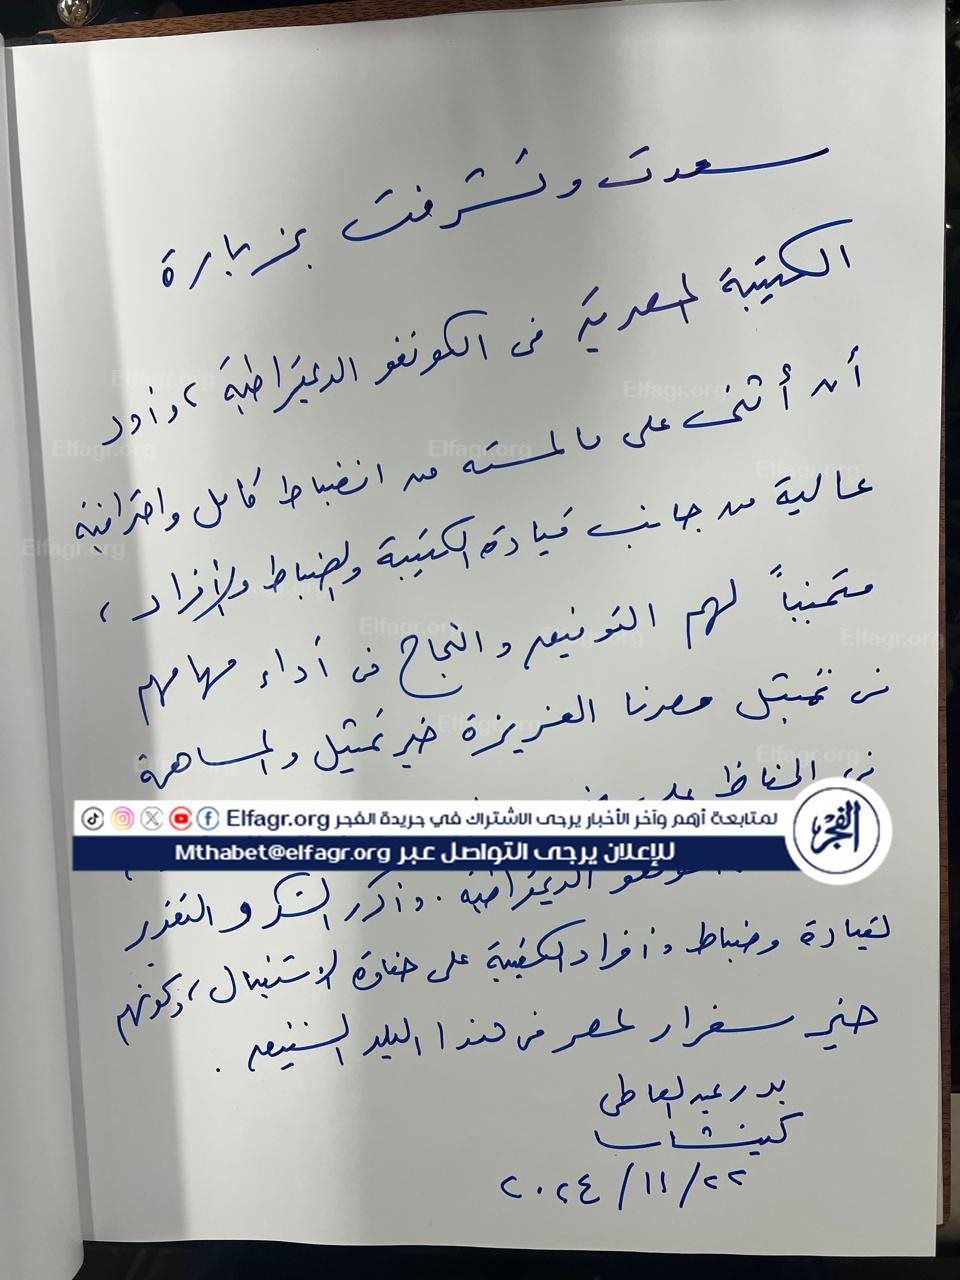 سعدت وتشرفت بزيارة
الكتيبة المصرية فى الكونغو الديمقراطية، وأود
أن أثنى على ما لمسته من انضباط كامل واحترافية
عالية من جانب قيادة الكتيبة والضباط والأفراد،
متمنياً لهم التوفيق والنجاح فى أداء مهامهم
فى تمثيل مصرنا العزيزة خير تمثيل والمساهمة
فى الحفاظ على
لمتابعة أهم وآخر الأخبار يرجى الاشتراك في جريدة الفجر Elfagr.org
الفجر
للإعلان يرجى التواصل عبر Mthabet@elfagr.org
الكونغو الديمقراطية. وأكرر الشكر والتقدير
لقيادة وضباط وأفراد الكتيبة على حفاوة الاستقبال، وكونهم
خير سفراء لمصر فى هذا البلد الشقيق.
بدر عبد العاطى
كينشاسا
٢٢/١١/٢٠٢٤
Elfagr.org
Elfagr.org
Elfagr.org
Elfagr.org
Elfagr.org
Elfagr.org
Elfagr.org
Elfagr.org
Elfagr.org
Elfagr.org